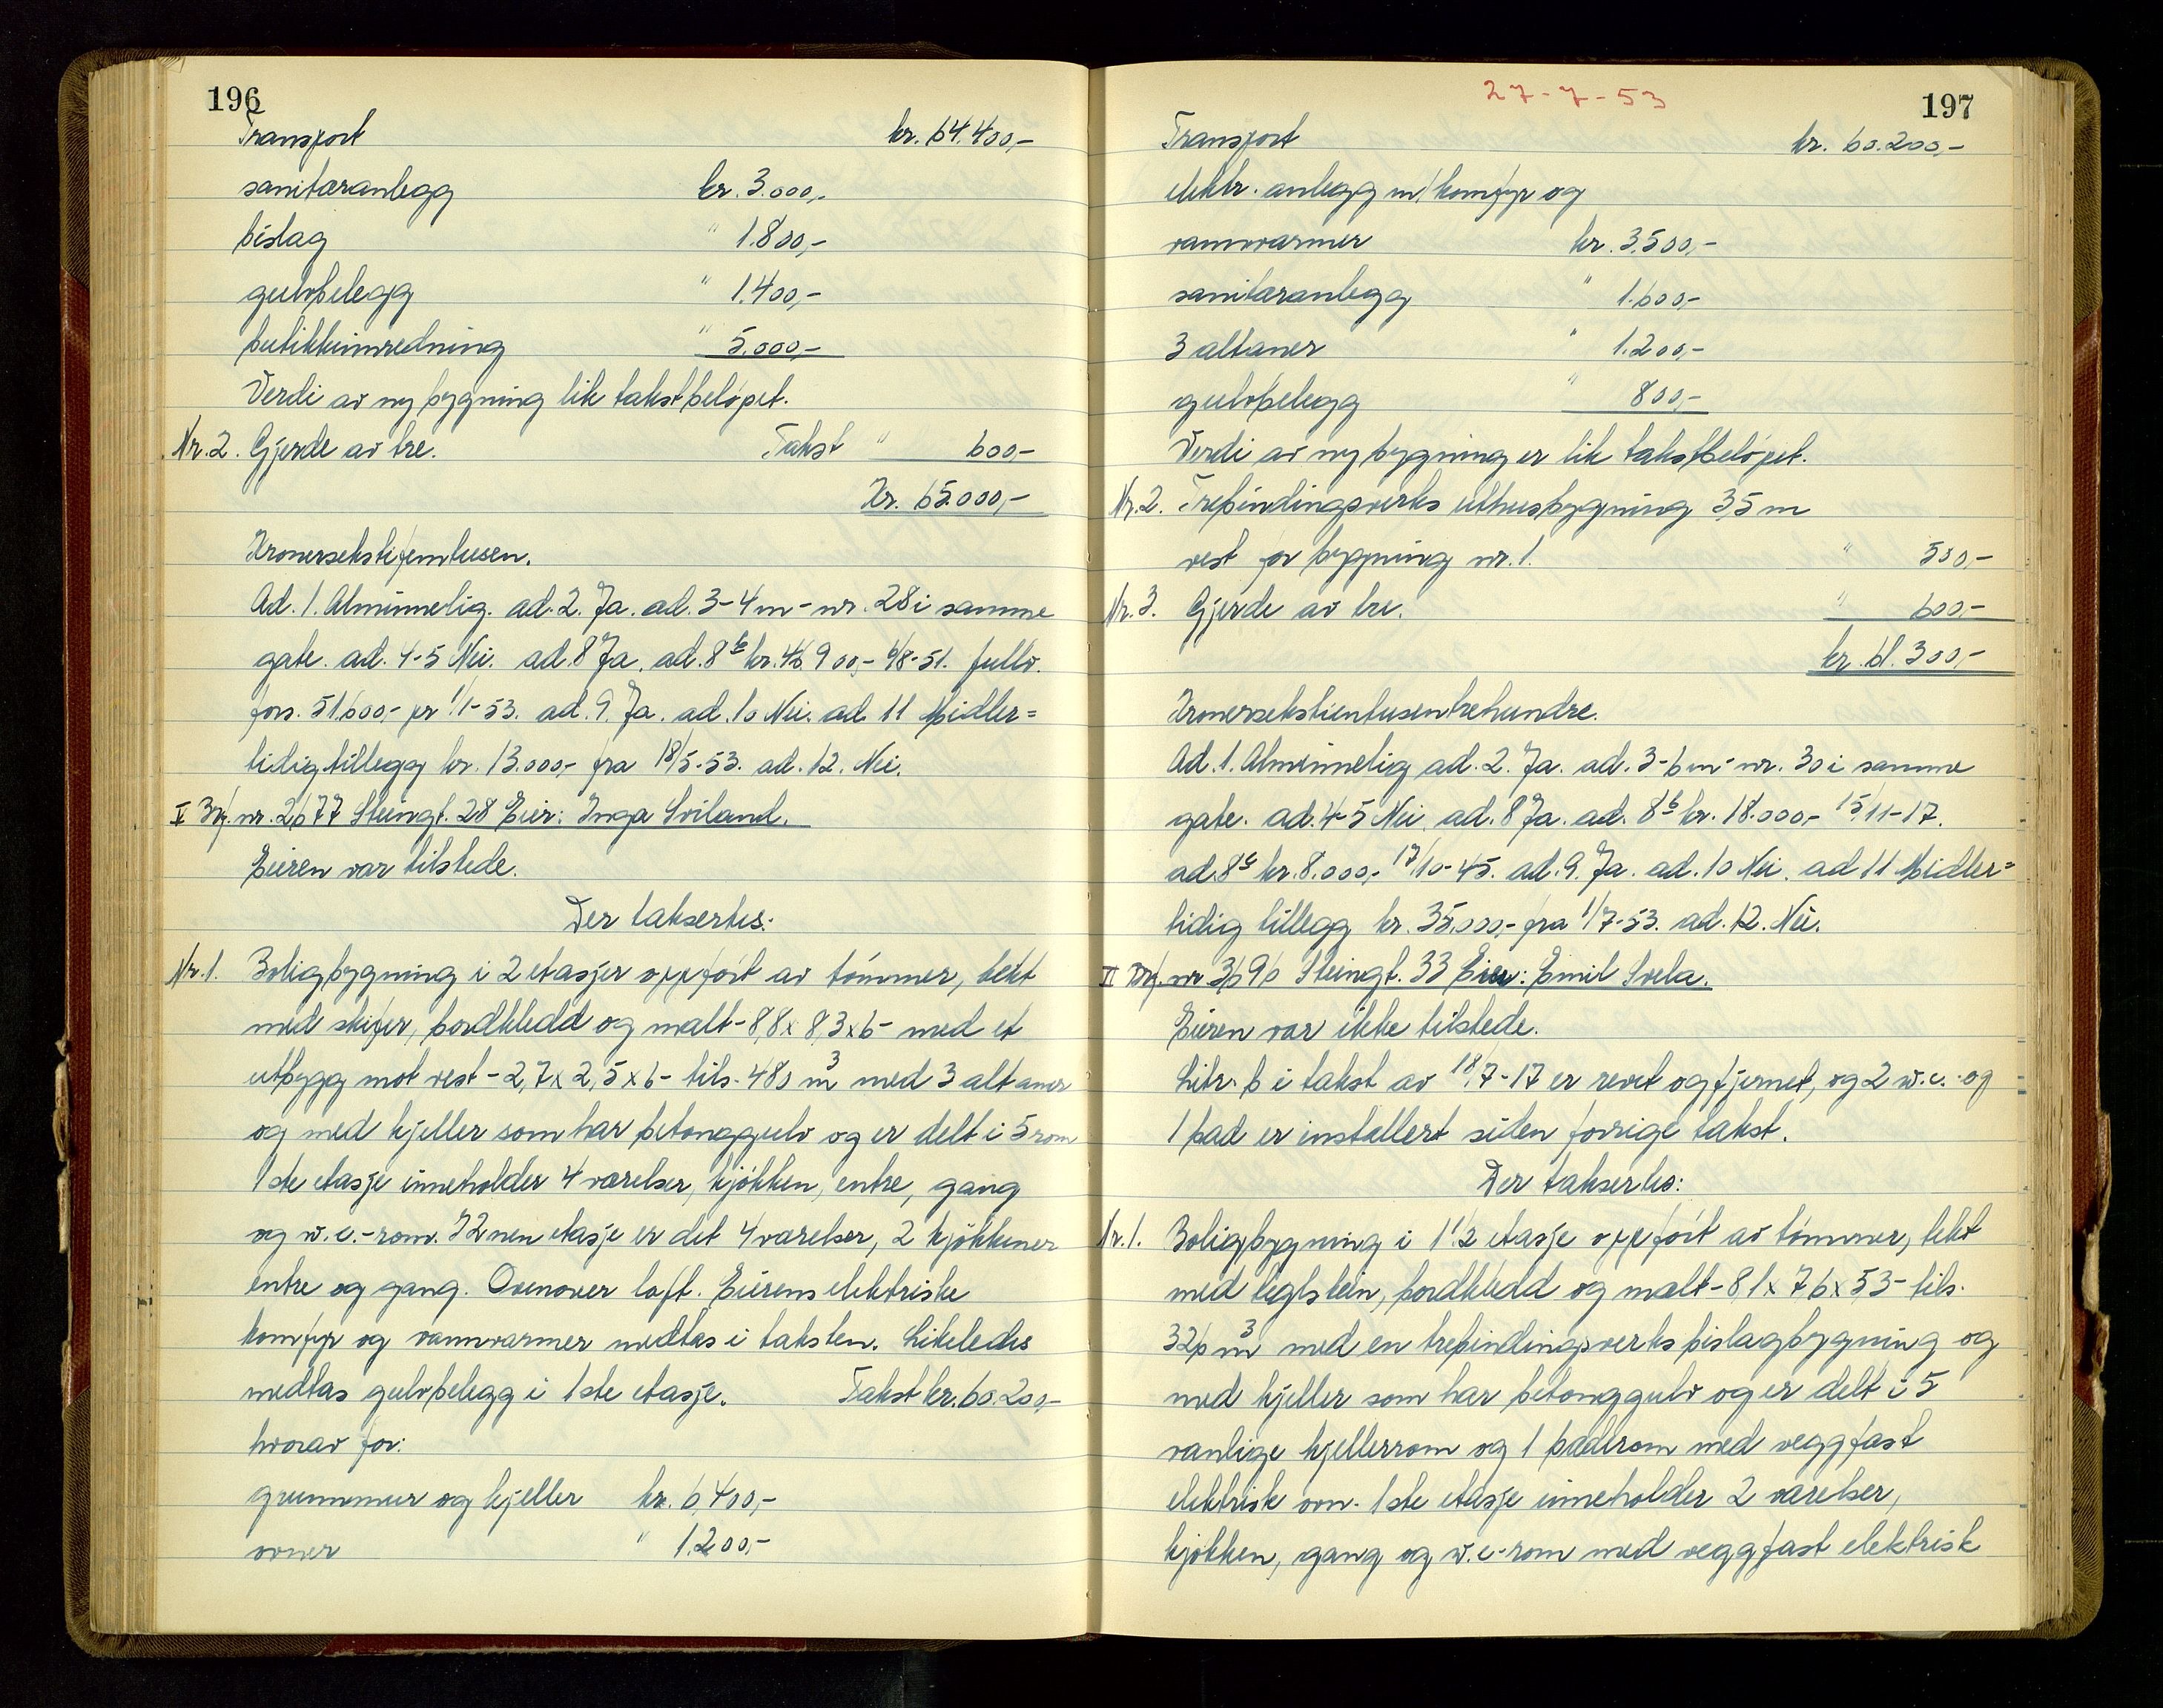 196
Transport kr. 64.400,-
sanitæranlegg kr. 3.000,-
bislag " 1.800,-
gulvbelegg " 1.400,-
butikkinnredning " 5.000,-
Verdi av ny bygning lik takstbeløpet.
Nr. 2. Gjerde av tre. Takst " 600,-
Kr. 65.000,-
Kronersekstifemtusen.
Ad. 1. Alminnelig. ad. 2. Ja. ad. 3-4 m - nr. 28 i samme
gate. ad. 4-5 Nei. ad. 8 Ja. ad. 8b kr. 46.900,- 6/8-51. fullv.
fors. 51.600,- pr 1/1-53. ad. 9. Ja. ad. 10 Nei. ad. 11 Midler=
tidig tillegg kr. 13.000,- fra 18/5-53. ad. 12. Nei.
V Brf. nr. 2677 Steingt. 28 Eier: Inga Sviland.
Eieren var tilstede.
Der takseres:
Nr. 1. Boligbygning i 2 etasjer oppført av tømmer, tekt
med skifer, bordkledd og malt - 8,8 x 8,3 x 6 - med et
utbygg mot vest - 2,7 x 2,5 x 6 - tils. 480 m3 med 3 altaner
og med kjeller som har betonggulv og er delt i 5 rom
1ste etasje inneholder 4 værelser, kjøkken, entre, gang
og w.c.-rom. I 2nen etasje er det 4 værelser, 2 kjøkkener
entre og gang. Ovenover loft. Eierens elektriske
komfyr og vannvarmer medtas i taksten. Likeledes
medtas gulvbelegg i 1ste etasje. Takst kr. 60.200,-
hvorav for:
grunnmur og kjeller kr. 6.400,-
ovner " 1.200,-
27-7-53
197
Transport kr. 60.200,-
elektr. anlegg m/komfyr og
vannvarmer kr. 3.500,-
sanitæranlegg " 1.600,-
3 altaner " 1.200,-
gulvbelegg " 800,-
Verdi av ny bygning er lik takstbeløpet.
Nr. 2. Trebindingsverks uthusbygning 3,5 m
vest for bygning nr. 1. " 500,-
Nr. 3. Gjerde av tre. " 600,-
kr. 61.300,-
Kronersekstientusentrehundre.
Ad. 1. Alminnelig ad. 2. Ja. ad. 3-6 m - nr. 30 i samme
gate. ad. 4-5 Nei. ad. 8 Ja. ad. 8b kr. 18.000,- 15/11-17.
ad. 8c kr. 8.000,- 17/10-45. ad. 9. Ja. ad. 10 Nei. ad 11 Midler=
tidig tillegg kr. 35.000,- fra 1/7-53. ad. 12. Nei.
VI Brf. nr. 3696 Steingt. 33 Eier: Emil Svela.
Eieren var ikke tilstede.
Litr. b i takst av 18/7-17 er revet og fjernet, og 2 w.c. og
1 bad er installert siden forrige takst.
Der takseres:
Nr. 1. Boligbygning i 1 1/2 etasje oppført av tømmer, tekt
med teglstein, bordkledd og malt - 8,1 x 7,6 x 5,3 - tils.
326 m3 med en trebindingsverks bislagbygning og
med kjeller som har betonggulv og er delt i 5
vanlige kjellerrom og 1 badrom med veggfast
elektrisk ovn. 1ste etasje inneholder 2 værelser,
kjøkken, gang og w.c-rom med veggfast elektrisk